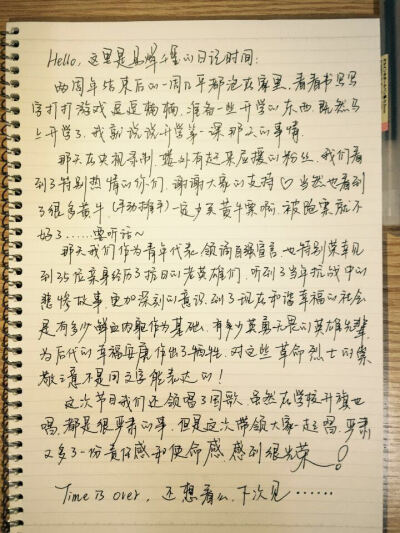 Hello, 这里是易烊千玺的日记时间:
两周年结束后的一周几乎都泡在家里,看看书写写
字打打游戏逗逗楠楠,准备一些开学的东西.既然马
上开学了,我就说说开学第一课那天的事情.
那天在央视录制,楼外有起来应援的粉丝,我们看
到了特别热情的你们,谢谢大家的支持♡当然也看到
了很多黄牛(手动推手)一定少买黄牛票啊,被险案就不
好了……要听话~
那天我们作为青年代表,领诵自强宣言,也特别荣幸见
到35位亲身经历了抗日的老英雄们,听到了当年抗战中的
悲惨故事,更加深刻的意识到了现在和谐幸福的社会
是有多少鲜血的躯作为基础,有多少英勇无畏的英雄先辈
为后代的幸福安康作出了牺牲,对这些革命烈士的崇
敬之意不是用文字能表达的!
这次节目我们还领唱了国歌,虽然在学校升旗也
唱,都是很严肃的事,但是这次带领大家一起唱,严肃
又多了一份责任感和使命感,感到很光荣!
Time is over, 还想看么,下次见……